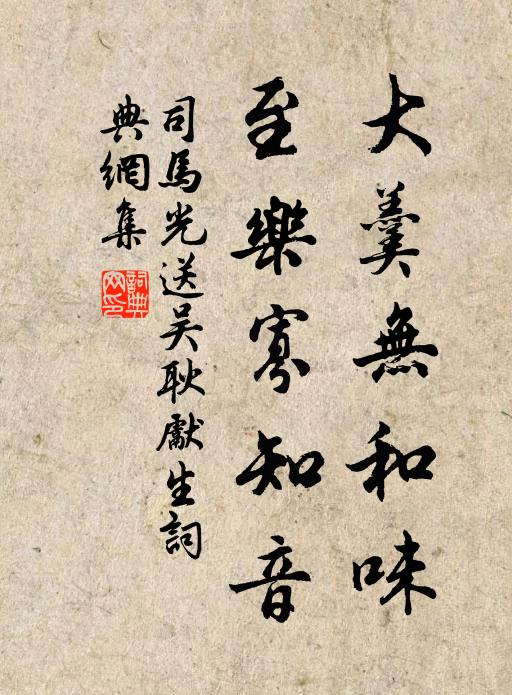 大羹無和味
至樂寡知音
司馬光送吴耿獻生詞
典網集
詞典網印